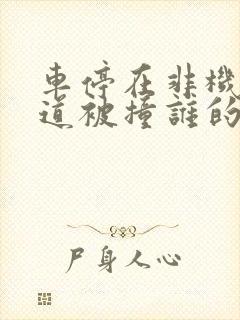 車停在非機
道被撞誰的
尸身人心